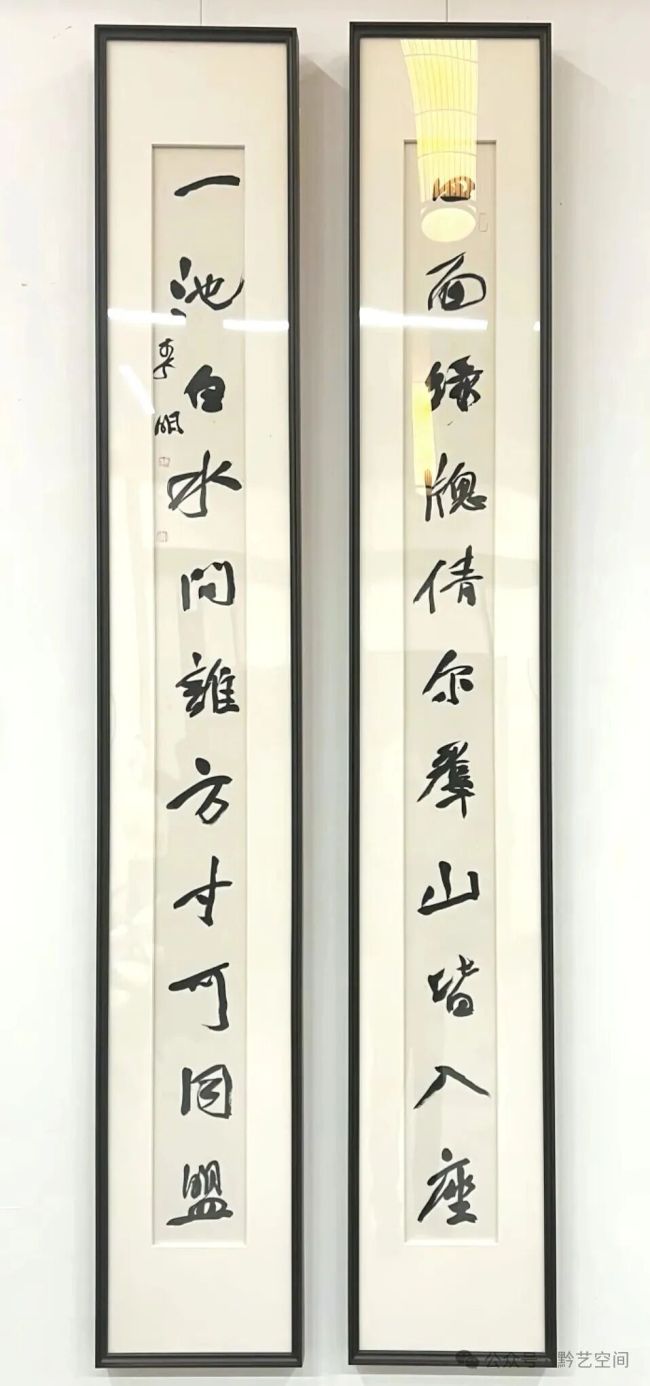 四面緑牕倩尔羣山皆入座
一池白水問誰方寸可同盟
公众号·黔艺空间